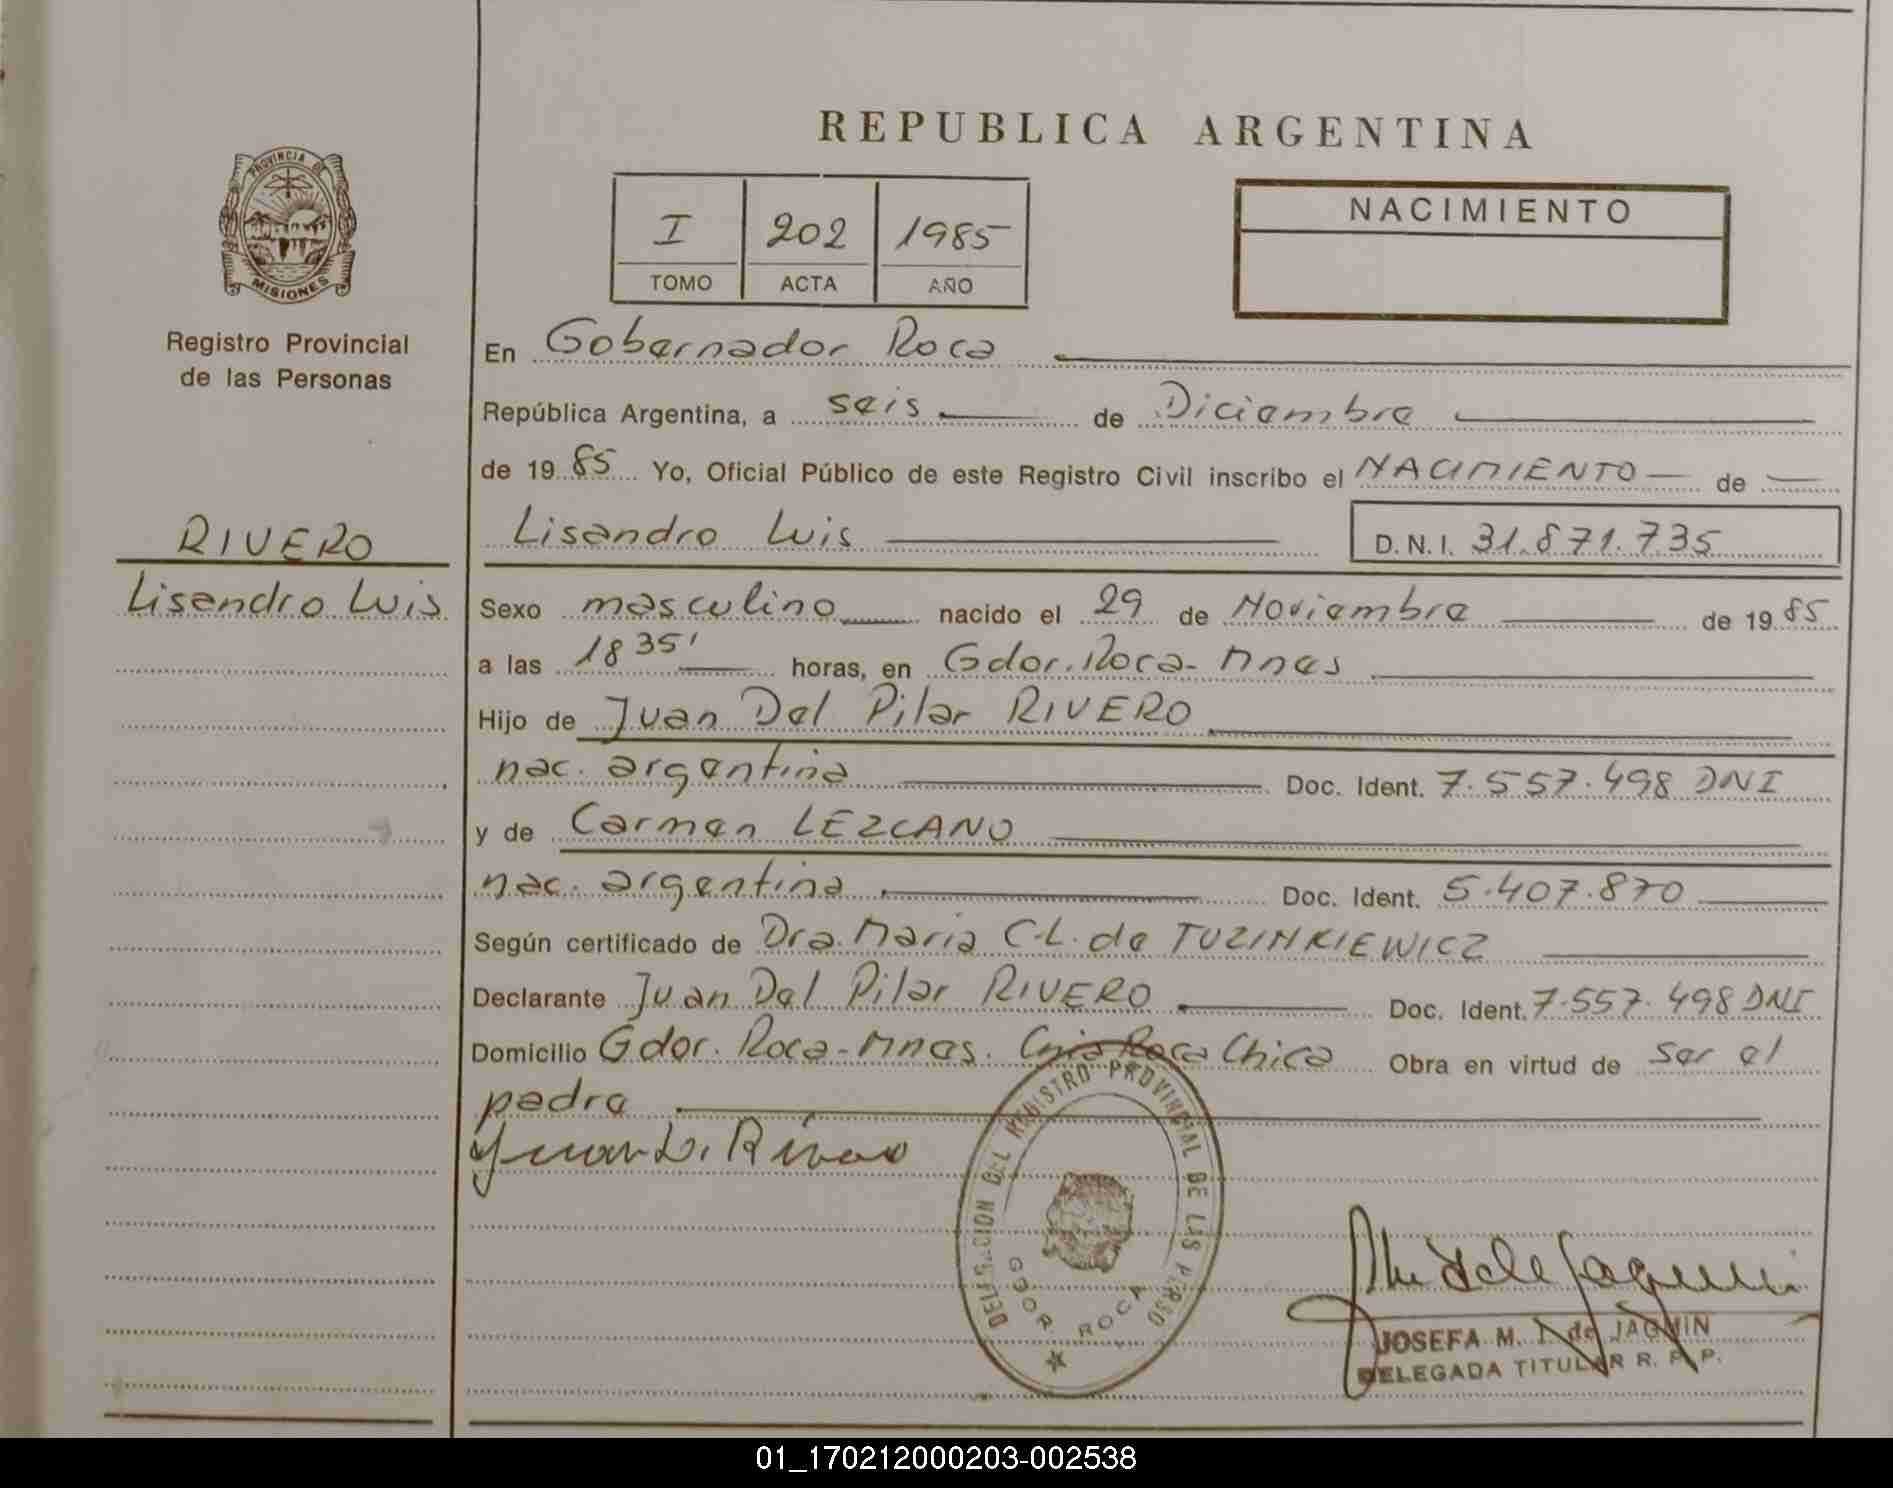 REPUBLICA ARGENTINA
PROVINCIA DE
MISIONES
Registro Provincial
de las Personas
RIVERO
Lisandro Luis
I 202 1985
TOMO ACTA AÑO
NACIMIENTO
En Gobernador Roca
República Argentina, a seis de Diciembre
de 1985 Yo, Oficial Público de este Registro Civil inscribo el NACIMIENTO de
Lisandro Luis D.N.I. 31.871.735
Sexo masculino nacido el 29 de Noviembre de 1985
a las 18 35' horas, en Gdor. Roca - Mnes
Hijo de Juan Del Pilar RIVERO
nac. argentina Doc. Ident. 7.557.498 DNI
y de Carmen LEZCANO
nac. argentina Doc. Ident. 5.407.870
Según certificado de Dra. Maria C.L. de TUZINKIEWICZ
Declarante Juan Del Pilar RIVERO Doc. Ident. 7.557.498 DNI
Domicilio Gdor. Roca - Mnes. Cnia Roca Chica Obra en virtud de ser el
padre
Juan D. Rivero
DELEGACION DEL REGISTRO PROVINCIAL DE LAS PERSO
GDOR. ROCA
JOSEFA M. T. de JAQUIN
DELEGADA TITULAR R. P. P.
01_170212000203-002538